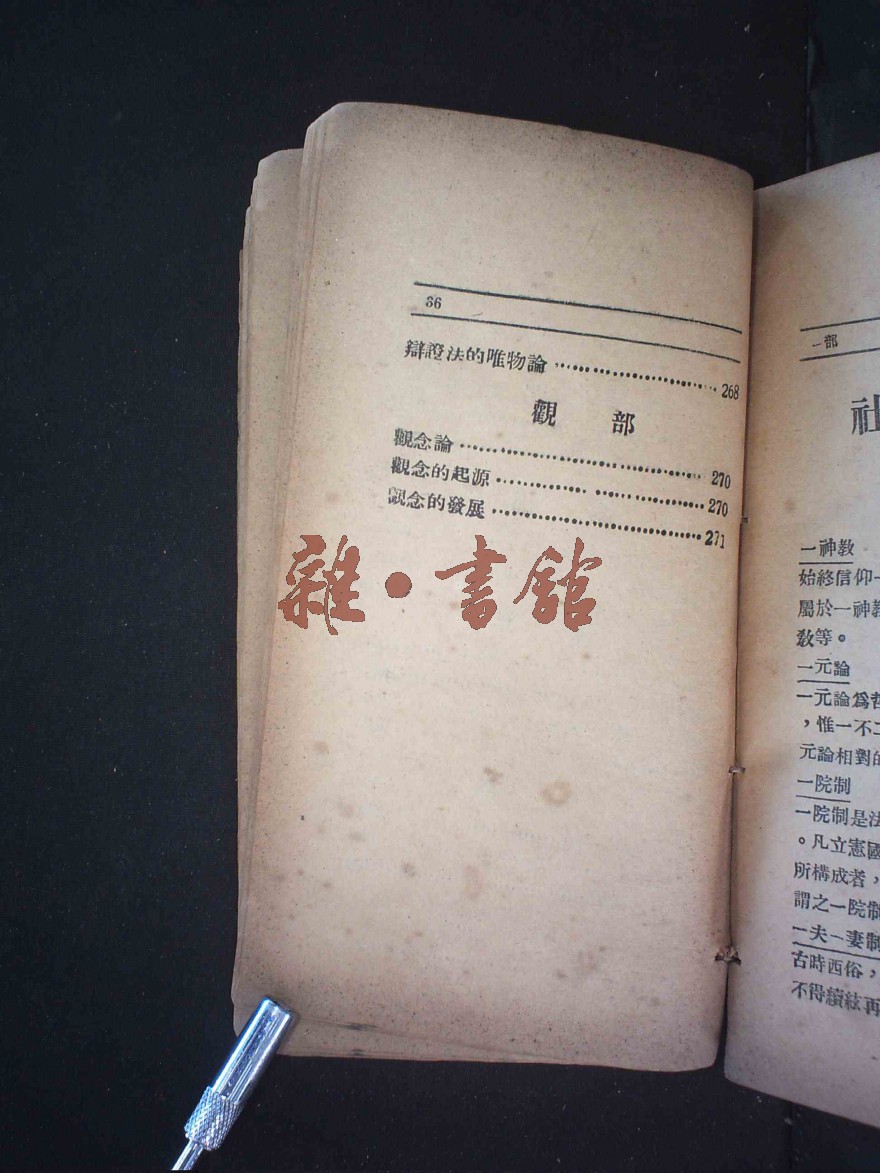 36
辯證法的唯物論 268
觀部
觀念論 270
觀念的起源 270
觀念的發展 271
雜·書館
一部
社
一神教
始終信仰一
屬於一神教
教等。
一元論
一元論爲哲
,惟一不二
元論相對的
一院制
一院制是法
。凡立憲國
所構成者,
謂之一院制
一夫一妻制
古時西俗,
不得續絃再